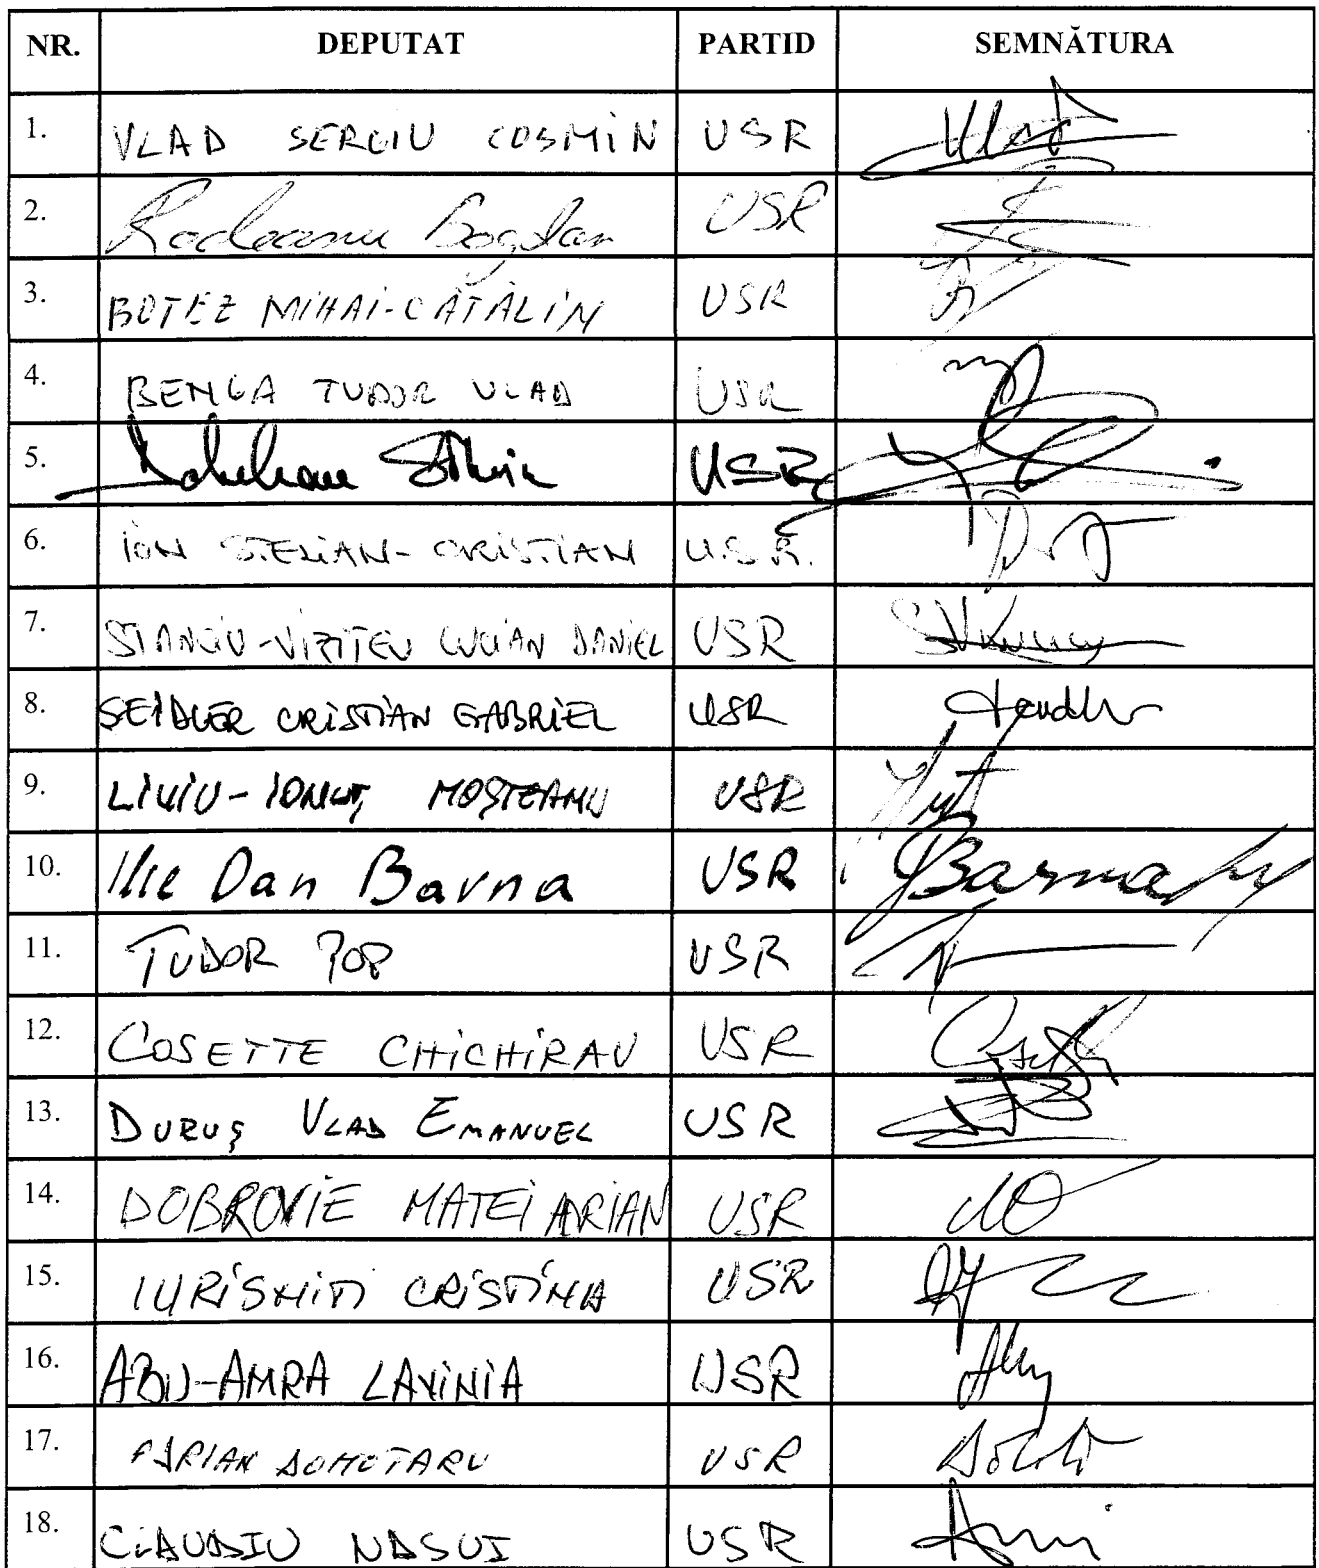 NR. DEPUTAT PARTID SEMNĂTURA
1. VLAD SERGIU COSMIN USR Vlad
2. Rodeanu Bogdan USR
3. BOTEZ MIHAI-CĂTĂLIN USR
4. BENGA TUDOR VLAD USR
5. USR
6. ION STELIAN-CRISTIAN U.S.R.
7. STANCIU-VIZITEU LUCIAN DANIEL USR
8. SEIDLER CRISTIAN GABRIEL USR
9. LIVIU-IONUȚ MOȘTEANU USR
10. Ilie Dan Barna USR Barna
11. TUDOR POP USR
12. COSETTE CHICHIRAU USR
13. DURUȘ VLAD EMANUEL USR
14. DOBROVIE MATEI ADRIAN USR
15. IURIȘNIȚI CRISTINA USR
16. ABU-AMRA LAVINIA USR
17. USR
18. CLAUDIU NASUI USR